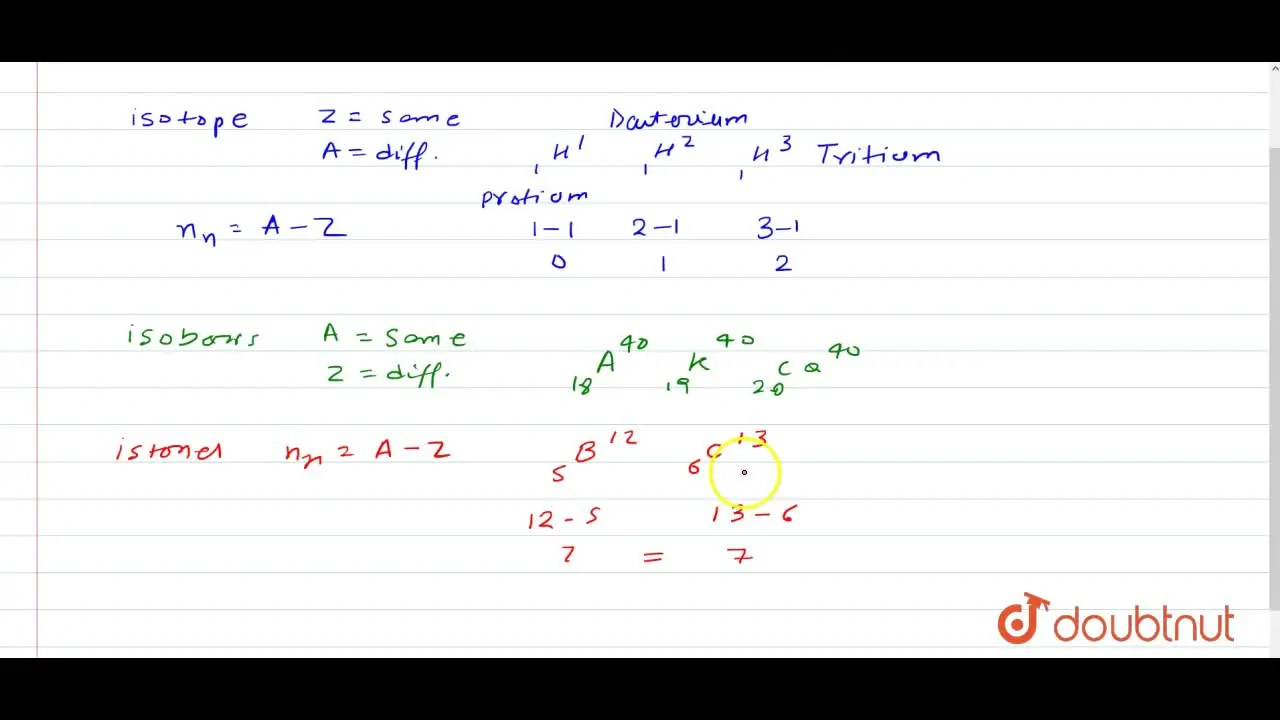 isotope Z = same Dauterium
A = diff. ₁H¹ ₁H² ₁H³ Tritium
protium
nₙ = A - Z 1-1 2-1 3-1
0 1 2
isobars A = same
Z = diff. ₁₈A⁴⁰ ₁₉K⁴⁰ ₂₀Ca⁴⁰
istones nₙ = A - Z ₅B¹² ₆C¹³
12 - 5 13 - 6
7 = 7
doubtnut